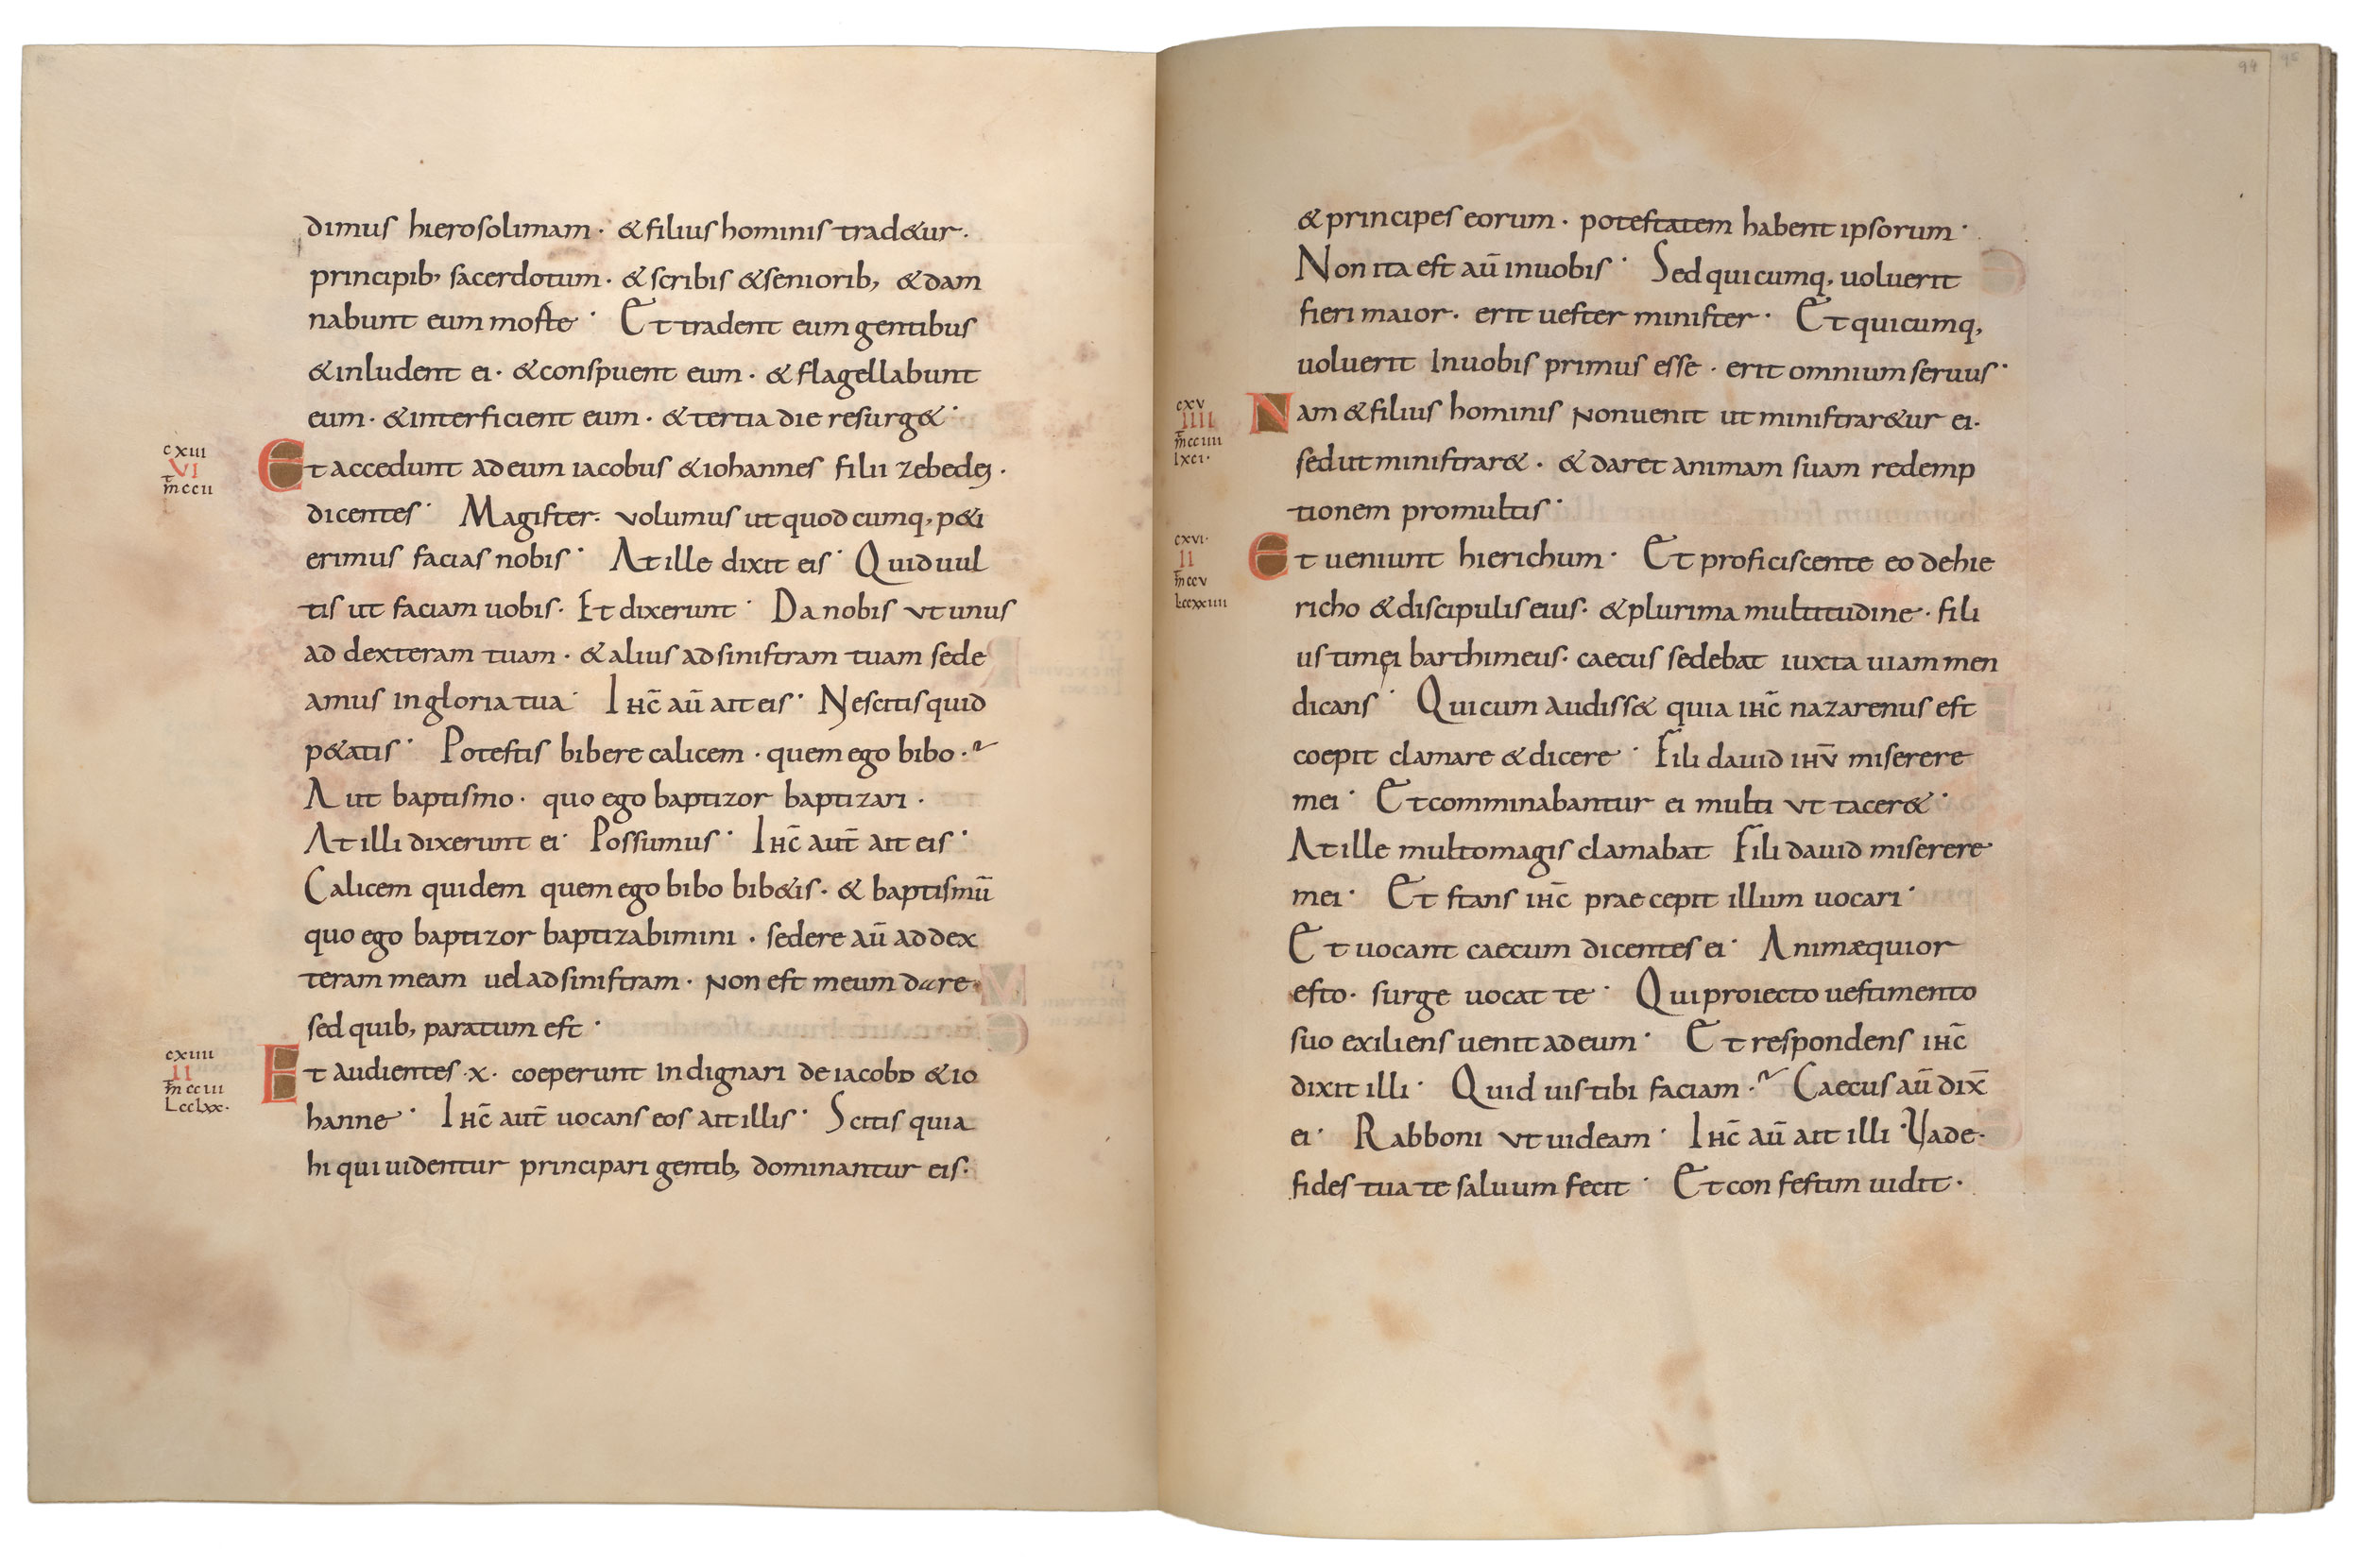 dimus hierosolimam · & filius hominis trad&ur ·
principib, sacerdotum · & scribis & seniorib, & dam
nabunt eum morte · Et tradent eum gentibus
& inludent ei · & conspuent eum · & flagellabunt
eum · & interficient eum · & tertia die resurg& ·
cxiii
VI
m̅ccii
Et accedunt ad eum iacobus & iohannes filii zebedę ·
dicentes · Magister · volumus ut quodcumq, p&i
erimus facias nobis · At ille dixit eis · Quid uul
tis ut faciam uobis · Et dixerunt · Da nobis ut unus
ad dexteram tuam · & alius ad sinistram tuam sede
amus in gloria tua · Ihc̅ au̅ ait eis · Nescitis quid
p&atis · Potestis bibere calicem · quem ego bibo ·
Aut baptismo · quo ego baptizor baptizari ·
At illi dixerunt ei · Possumus · Ihc̅ aut̅ ait eis ·
Calicem quidem quem ego bibo bib&is · & baptismu̅
quo ego baptizor baptizabimini · sedere au̅ ad dex
teram meam uel ad sinistram · non est meum dare ·
sed quib, paratum est ·
cxiiii
II
m̅cciii
Lcclxx ·
Et audientes · x · coeperunt indignari de iacobo & io
hanne · Ihc̅ aut̅ uocans eos ait illis · Scitis quia
hi qui uidentur principari gentib, dominantur eis ·
94
& principes eorum · potestatem habent ipsorum ·
Non ita est au̅ in uobis · Sed quicumq, uoluerit
fieri maior · erit uester minister · Et quicumq,
uoluerit in uobis primus esse · erit omnium seruus ·
cxv
IIII
m̅cciiii
lxci ·
Nam & filius hominis non uenit ut ministrar&ur ei ·
sed ut ministrar& · & daret animam suam redemp
tionem pro multis ·
cxvi ·
II
m̅ccv
Lccxxiiii
Et ueniunt hierichum · Et proficiscente eo de hie
richo & discipulis eius · & plurima multitudine · fili
us timęi barthimeus · caecus sedebat iuxta uiam men
dicans · Qui cum audiss& quia ihc̅ nazarenus est
coepit clamare & dicere · Fili dauid ihu̅ miserere
mei · Et comminabantur ei multi ut tacer& ·
At ille multo magis clamabat Fili dauid miserere
mei · Et stans ihc̅ praecepit illum uocari ·
Et uocant caecum dicentes ei · Animæquior
esto · surge uocat te · Qui proiecto uestimento
suo exiliens uenit ad eum · Et respondens ihc̅
dixit illi · Quid uis tibi faciam · Caecus au̅ dix̅
ei · Rabboni ut uideam · Ihc̅ au̅ ait illi · Vade ·
fides tua te saluum fecit · Et confestim uidit ·